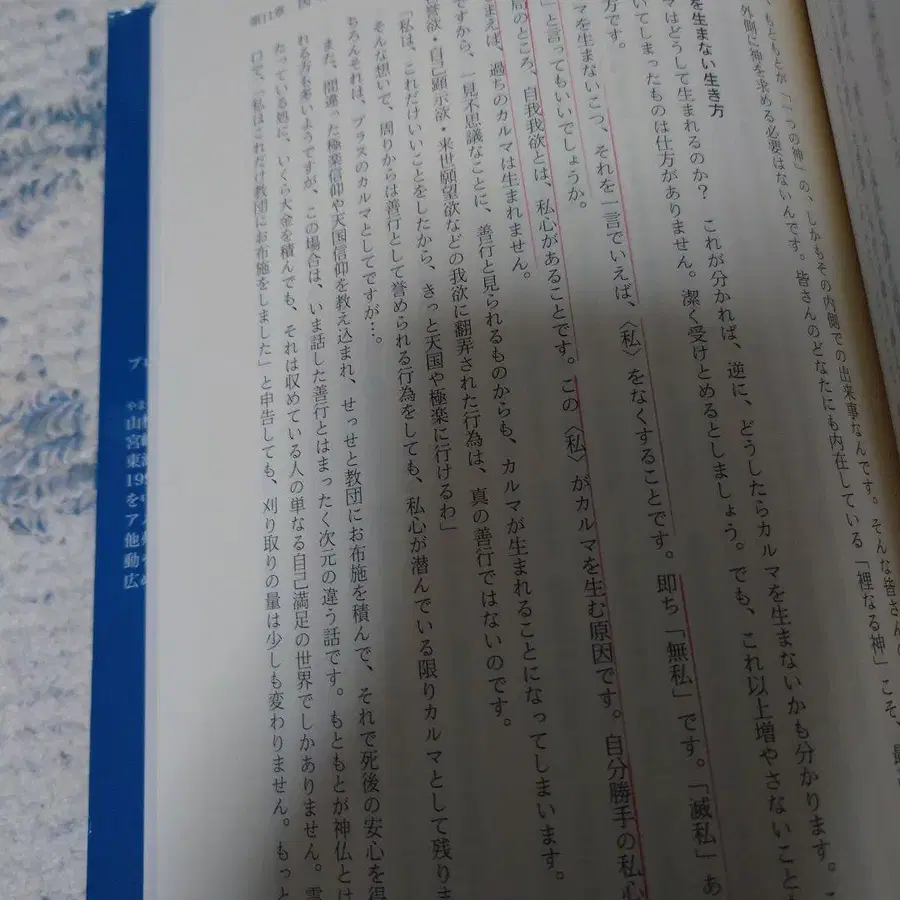 いもともとが「一つの神」の、しかもその内側での出来事なんです。そんな皆さんの
外側に神を求める必要はないんです。皆さんのどなたにも内在している「裡なる神」こそ、最
を生まない生き方
マはどうして生まれるのか? これが分かれば、逆に、どうしたらカルマを生まないかも分かります。
いてしまったものは仕方がありません。潔く受けとめるとしましょう。でも、これ以上増やさないこと
方です。
マを生まないこつ、それを一言でいえば、〈私〉をなくすることです。即ち「無私」です。「滅私」あ
」と言ってもいいでしょうか。
局のところ、自我我欲とは、私心があることです。この〈私〉がカルマを生む原因です。自分勝手の私心
まえば、過ちのカルマは生まれません。
ですから、一見不思議なことに、善行と見られるものからも、カルマが生まれることになってしまいます。
誉欲・自己顕示欲・来世願望欲などの我欲に翻弄された行為は、真の善行ではないのです。
「私は、これだけいいことをしたから、きっと天国や極楽に行けるわ」
そんな想いで、周りからは善行として誉められる行為をしても、私心が潜んでいる限りカルマとして残りま
ちろんそれは、プラスのカルマとしてですが…。
また、間違った極楽信仰や天国信仰を教え込まれ、せっせと教団にお布施を積んで、それで死後の安心を得
れる方も多いようですが、この場合は、いま話した善行とはまったく次元の違う話です。もともとが神仏とは
たっている処に、いくら大金を積んでも、それは収めている人の単なる自己満足の世界でしかありません。霊
口で、「私はこれだけ教団にお布施をしました」と申告しても、刈り取りの量は少しも変わりません。もっと
第11章
プロ
やま
山
宮
東
195
を
ア
他
動
広